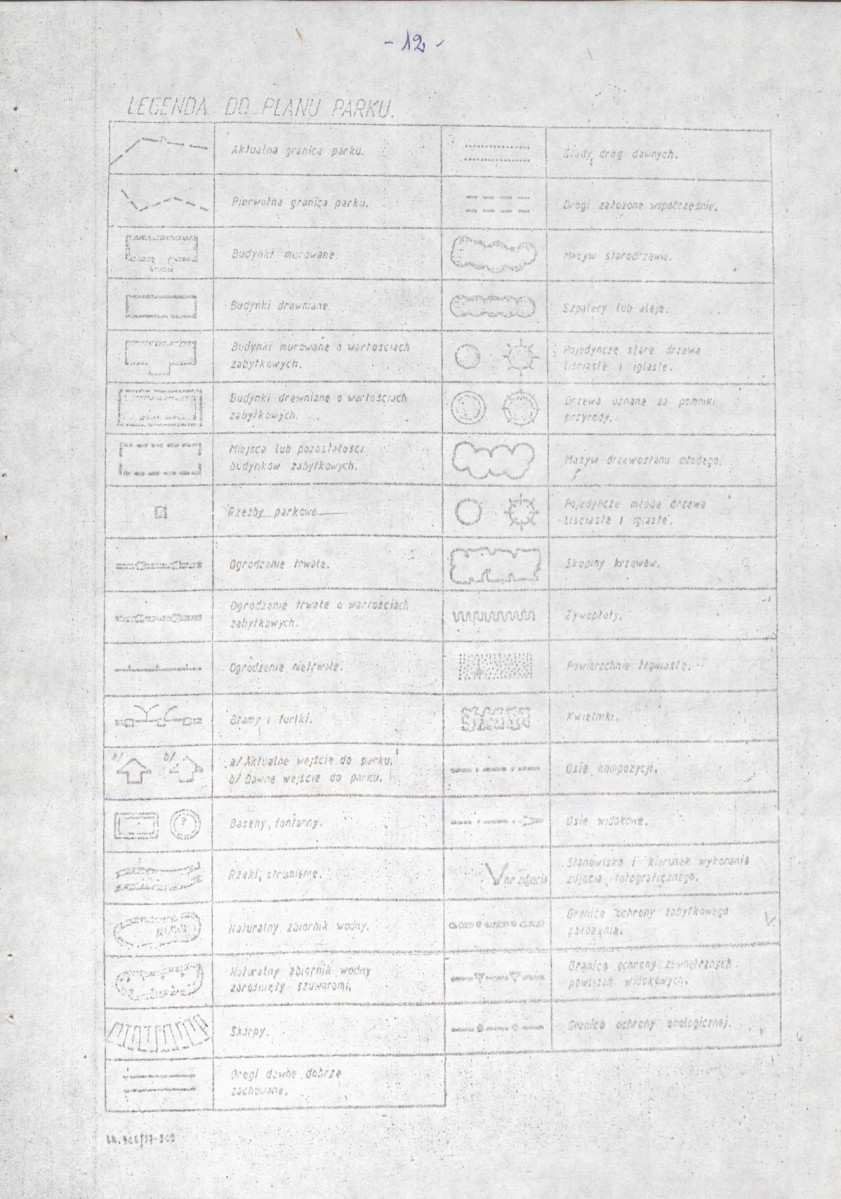 - 12 -
LEGENDA DO PLANU PARKU.
Aktualna granica parku.
Pierwotna granica parku.
Budynki murowane.
Budynki drewniane.
Budynki murowane o wartościach
zabytkowych.
Budynki drewniane o wartościach
zabytkowych.
Miejsca lub pozostałości
budynków zabytkowych.
Rzeźby parkowe
Ogrodzenie trwałe.
Ogrodzenie trwałe o wartościach
zabytkowych.
Ogrodzenie nietrwałe.
Bramy i furtki.
a/ b/
a/ Aktualne wejście do parku.
b/ Dawne wejście do parku.
Baseny, fontanny.
Rzeki, strumienie.
Naturalny zbiornik wodny.
Naturalny zbiornik wodny
zarośnięty szuwarami.
Skarpy.
Drogi dawne dobrze
zachowane.
Ślady dróg dawnych.
Drogi założone współcześnie.
Masyw starodrzewia.
Szpalery lub aleje.
Pojedyncze stare drzewa
liściaste i iglaste.
Drzewa uznane za pomniki
przyrody.
Masyw drzewostanu młodego.
Pojedyncze młode drzewa
liściaste i iglaste.
Skupiny krzewów.
Żywopłoty.
Powierzchnie trawiaste.
Kwietniki.
Osie kompozycji.
Osie widokowe.
nr zdjęcia
Stanowisko i kierunek wykonania
zdjęcia fotograficznego.
Granica ochrony zabytkowego
założenia.
Granica ochrony zewnętrznych
powiązań widokowych.
Granica ochrony ekologicznej.